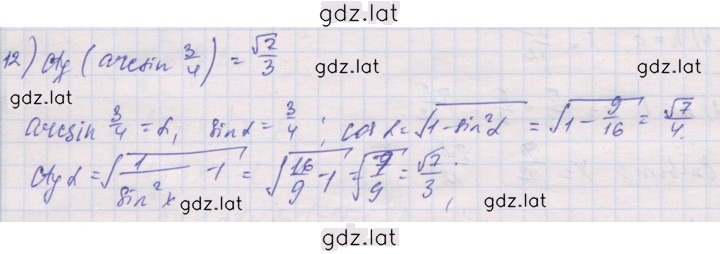 gdz.lat
12) ctg (arcsin 3/4) = √7/3
gdz.lat gdz.lat
gdz.lat
arcsin 3/4 = α, sin α = 3/4 ; cos α = √(1 - sin²α) = √(1 - 9/16) = √7/4.
ctg α = √(1/sin²x - 1) = √(16/9 - 1) = √(7/9) = √7/3 ;
gdz.lat gdz.lat
gdz.lat